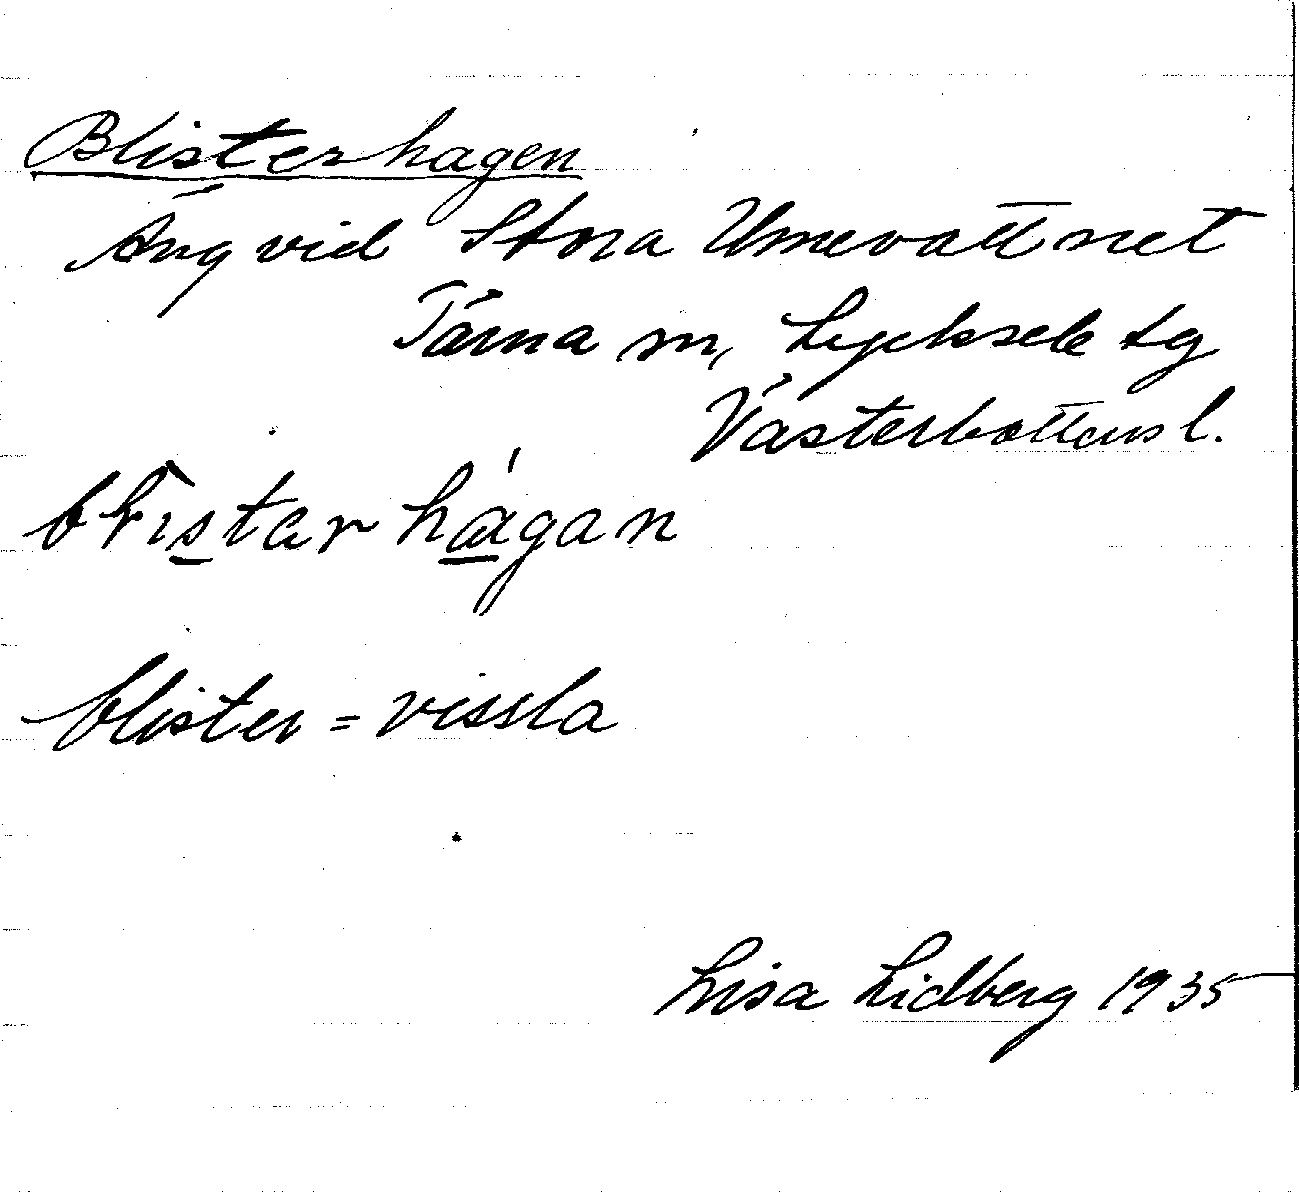 Blisterhagen
Äng vid Stora Umevattnet
Tärna sn, Lycksele tg
Västerbottens l.
blistar hágan
blister = vissla
Lisa Lidberg 1935